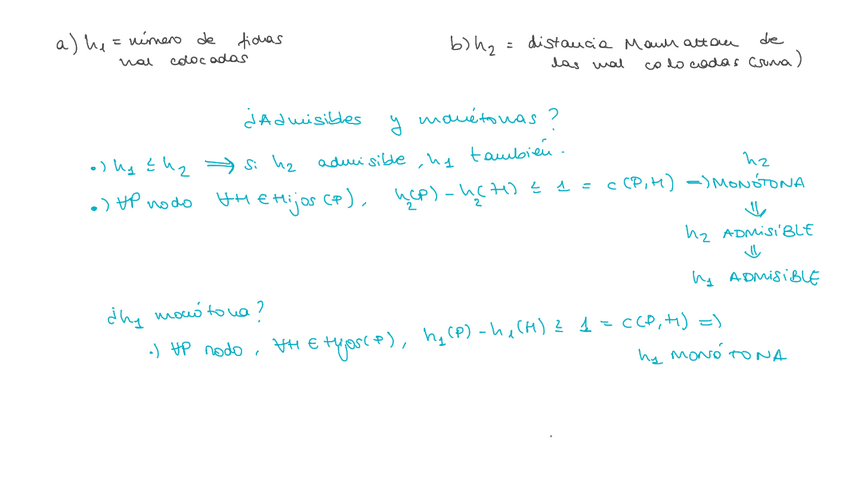 a) h₁ = número de fichas
mal colocadas
b) h₂ = distancia Manhattan de
las mal colocadas (suma)
¿Admisibles y monótonas?
•) h₁ ≤ h₂ ⟹ si h₂ admisible, h₁ también.
•) ∀P nodo ∀H ∈ Hijos(P), h₂(P) - h₂(H) ≤ 1 = c(P,H) ⟹ MONÓTONA
h₂
⇓
h₂ ADMISIBLE
⇓
h₁ ADMISIBLE
¿h₁ monótona?
•) ∀P nodo, ∀H ∈ Hijos(P), h₁(P) - h₁(H) ≥ 1 = c(P,H) ⟹
h₁ MONÓTONA